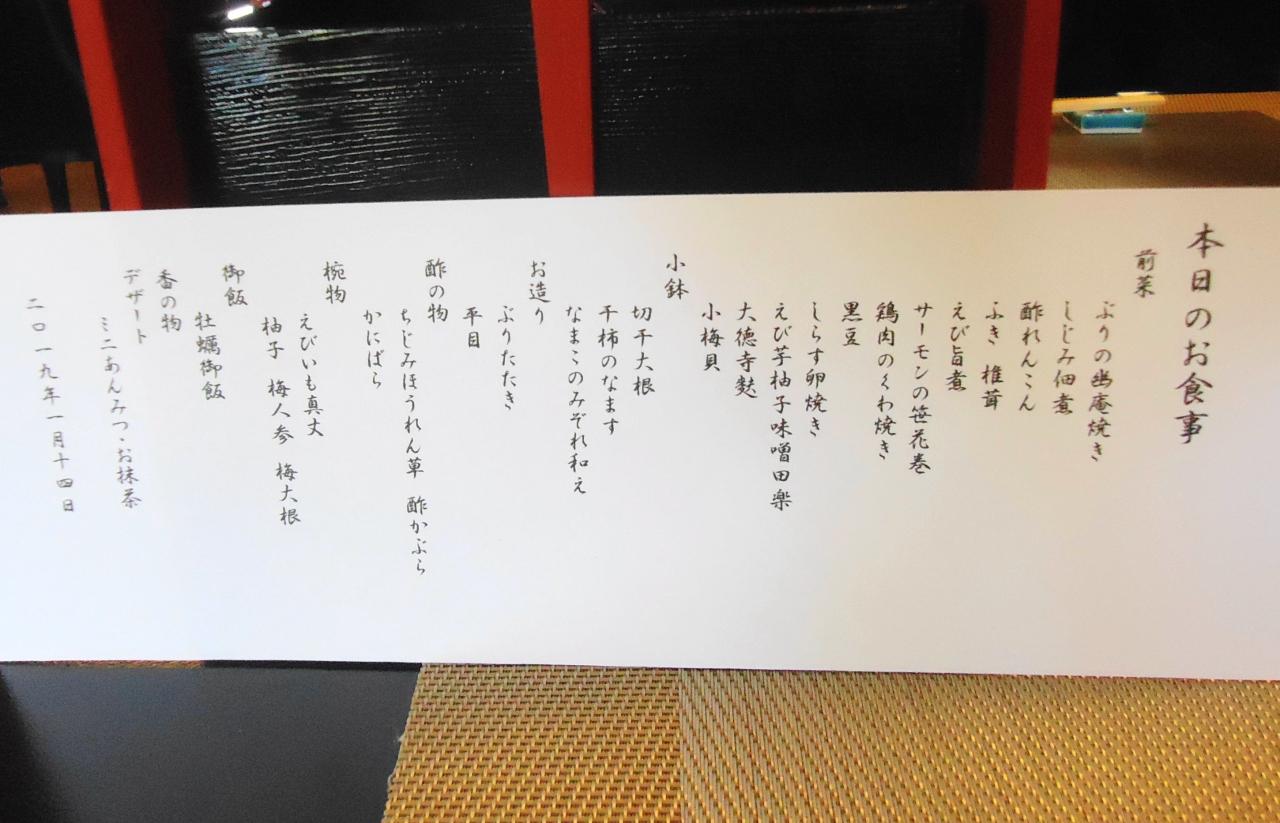 本日のお食事
前菜
ぶりの幽庵焼き
しじみ佃煮
酢れんこん
ふき 椎茸
えび旨煮
サーモンの笹花巻
鶏肉のくわ焼き
黒豆
しらす卵焼き
えび芋柚子味噌田楽
大徳寺麩
小梅貝
小鉢
切干大根
干柿のなます
なまこのみぞれ和え
お造り
ぶりたたき
平目
酢の物
ちじみほうれん草 酢かぶら
かにばら
椀物
えびいも真丈
柚子 梅人参 梅大根
御飯
牡蠣御飯
香の物
デザート
ミニあんみつ・お抹茶
二〇一九年一月十四日